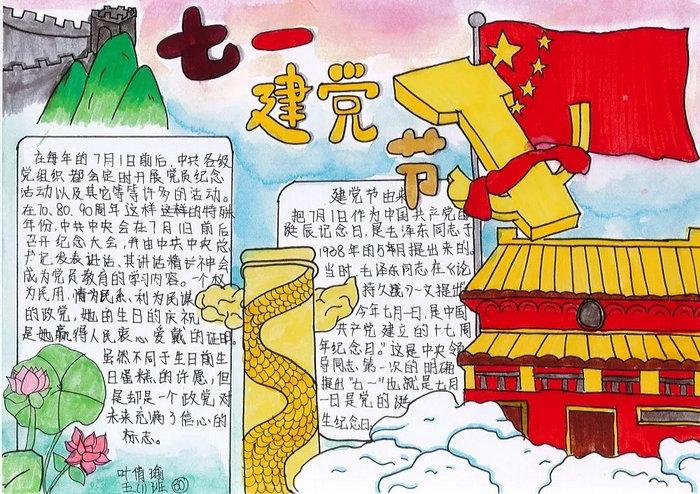 七一
建党
节
在每年的7月1日前后,中共各级
党组织都会定时开展党员纪念
活动以及其它等等许多的活动。
在70、80、90周年这样这样的特殊
年份,中共中央会在7月1日前后
召开纪念大会,并由中中央总
书记发表讲话,其讲话精神会
成为党员教育的学习内容。一个权
为民用,情为民系、利为民谋
的政党,她的生日的庆祝
是她赢得人民衷心爱戴的证明。
虽然不同于生日前生
日蛋糕的许愿,但
是却是一个政党对
未来充满了信心的
标志。
建党节由来
把7月1日作为中国共产党的
诞辰记念日,是毛泽东同志于
1938年的5月提出来的。
当时,毛泽东同志在《论
持久战》一文提出
今年七月一日,是中国
共产党建立的十七周
年纪念日。"这是中央领
导同志第一次的明确
提出"七一"也就是七月
一日是党的诞
生纪念日
叶倩瑜
五(1)班 30